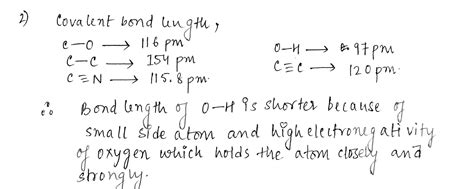 2) Covalent bond length,
C-O → 116 pm O-H → 97 pm
C-C → 154 pm C≡C → 120 pm.
C≡N → 115.8 pm.
∴ Bond length of O-H is shorter because of
small side atom and high electronegativity
of oxygen which holds the atom closely and
strongly.